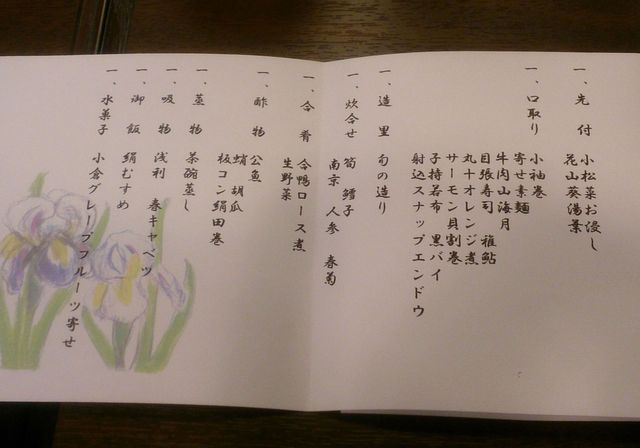 一、先付 小松菜お浸し
花山葵湯葉
一、口取り 小袖巻
寄せ素麺
牛肉山海月
目張寿司 稚鮎
丸十オレンジ煮
サーモン貝割巻
子持若布 黒バイ
射込スナップエンドウ
一、造里 旬の造り
一、炊合せ 筍 鱈子
南京 人参 春菊
一、合肴 合鴨ロース煮
生野菜
一、酢物 公魚
蛸 胡瓜
板コン絹田巻
一、蒸物 茶碗蒸し
一、吸物 浅利 春キャベツ
一、御飯 絹むすめ
一、水菓子 小倉グレープフルーツ寄せ